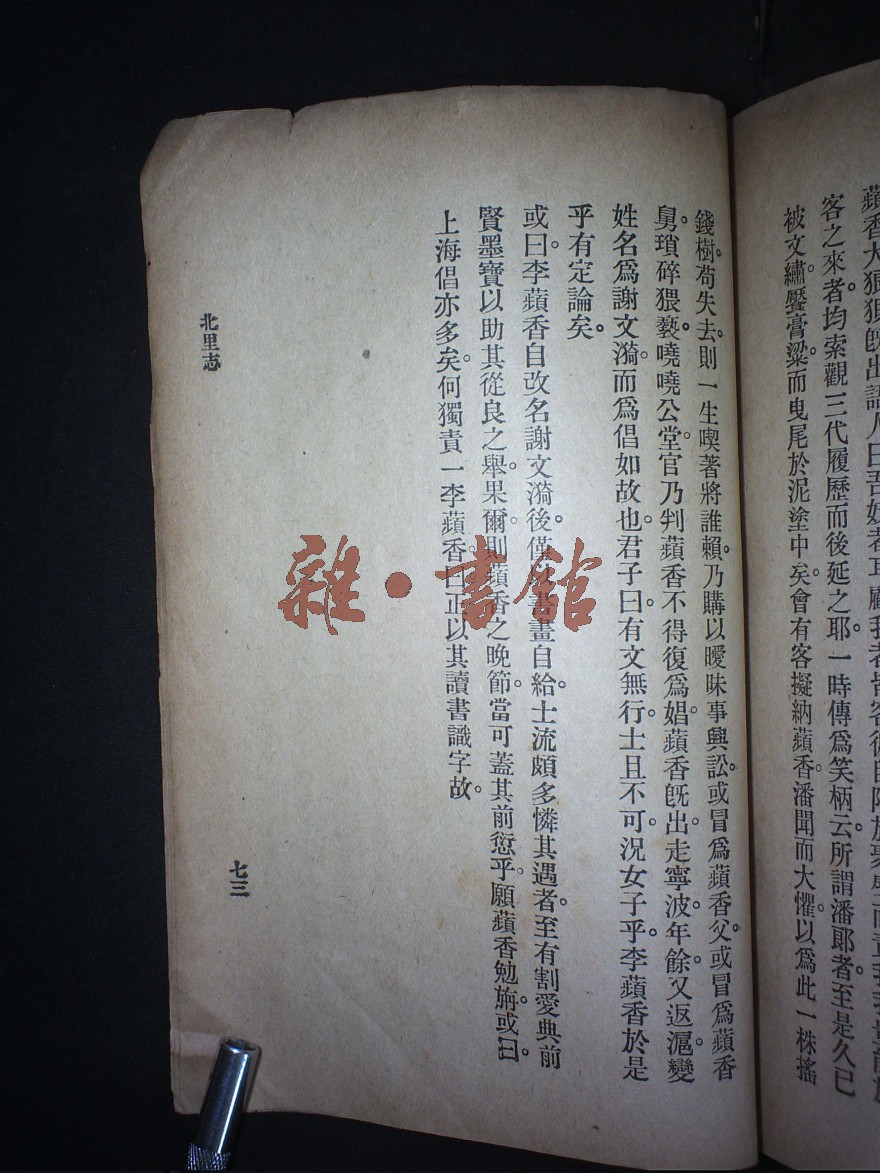 蘋香大狼狽旣出語人曰吾
客之來者均索觀三代履歷而後延之耶。一時傳爲笑柄云。所謂潘郞者。至是久已
被文繡。饜膏粱。而曳尾於泥塗中矣。會有客擬納蘋香。潘聞而大懼。以爲此一株搖
錢樹。苟失去。則一生喫著將誰賴。乃購以曖昧事興訟。或冒爲蘋香父。或冒爲蘋香
舅。瑣碎猥褻。嘵嘵公堂。官乃判蘋香不得復爲娼。蘋香旣出。走寧波。年餘。又返滬。變
姓名爲謝文漪。而爲倡如故也。君子曰。有文無行。士且不可。況女子乎。李蘋香於是
乎有定論矣。
或曰。李蘋香自改名謝文漪後。僅書畫自給。士流頗多憐其遇者。至有割愛典前
賢墨寶以助其從良之舉。果爾。則蘋香之晚節。當可蓋其前愆乎。願蘋香勉旃。或曰。
上海倡亦多矣。何獨責一李蘋香。曰。正以其讀書識字故。
北里志
七三
雜·書館